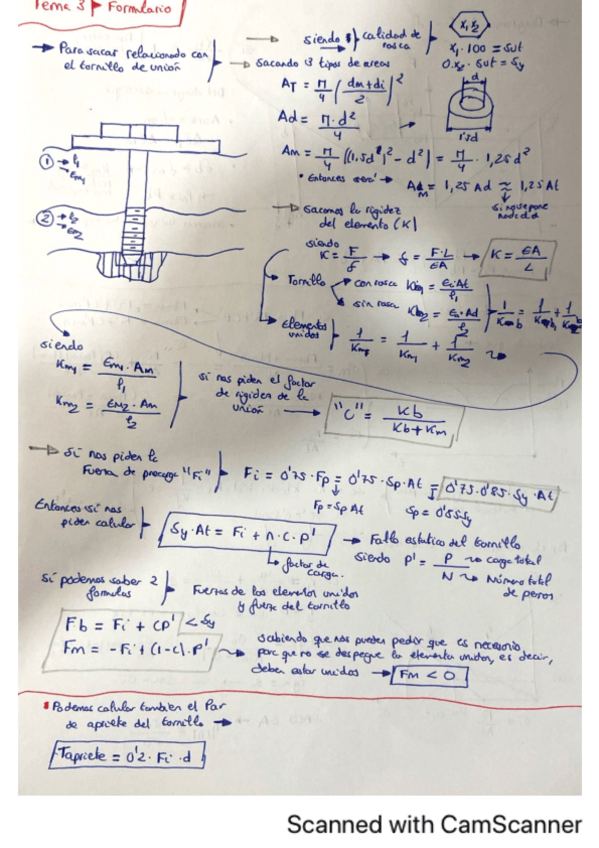 Tema 3 ▶ Formulario
→ Para sacar relacionado con el tornillo de unión
→ siendo calidad de rosca
x₁.x₂
x₁·100 = Sut
0.x₂·Sut = Sy
→ Sacando 3 tipos de areas
AT = π/4 (dm+di/2)²
Ad = π·d²/4
d
1'5d
Am = π/4 ((1.5d)² - d²) = π/4 · 1,25d²
• Entonces será → Am = 1,25 Ad ≈ 1,25 At
si no se pone nada d.d
① → l₁
Em₁
② → l₂
Em₂
→ Sacamos la rigidez del elemento (K)
siendo
K = F/δ → δ = F·L/EA → K = EA/L
Tornillo
con rosca Kb₁ = E·At/l₁
sin rosca Kb₂ = E·Ad/l₂
1/Kb = 1/Kb₁ + 1/Kb₂
Elementos unidos
1/Km = 1/Km₁ + 1/Km₂
siendo
Km₁ = Em₁·Am/l₁
Km₂ = Em₂·Am/l₂
Si nos piden el factor de rigidez de la unión → "C" = Kb/Kb+Km
→ Si nos piden la Fuerza de precarga "Fi"
Fi = 0'75·Fp = 0'75·Sp·At = 0'75·0'85·Sy·At
Fp = Sp At
Sp = 0'85Sy
Entonces si nos piden calcular
Sy·At = Fi + n·C·P'
→ Fallo estatico del tornillo
factor de carga.
siendo P' = P/N
carga total
Número total de pernos
Si podemos saber 2 formulas
Fuerzas de los elementos unidos y fuerza del tornillo
Fb = Fi + CP' < Sy
Fm = -Fi + (1-C).P'
sabiendo que nos pueden pedir que es necesario para que no se despegue los elementos unidos, es decir, deben estar unidos → Fm < 0
Podemos calcular tambien el Par de apriete del tornillo →
Tapriete = 0'2·Fi·d
Scanned with CamScanner